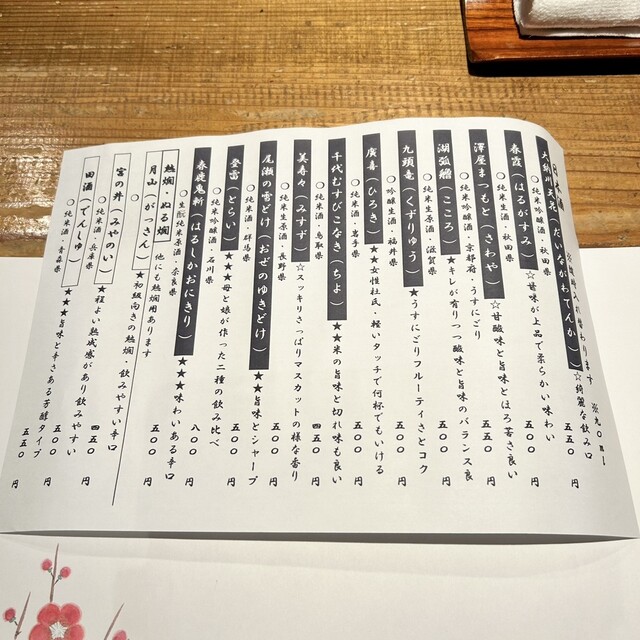 日本酒
入れ替わります
※九〇ml
大納川天花（だいながわてんか）
☆綺麗な飲み口
〇純米吟醸酒・秋田県
五五〇円
春霞（はるがすみ）
☆甘味が上品で柔らかい味わい
〇純米酒・秋田県
五〇〇円
澤屋まつもと（さわや）
☆甘酸味と旨味とほろ苦さ良い
〇純米吟醸酒・京都府・うすにごり
五五〇円
湖弧艪（こころ）
★キレが有りつつ酸味と旨味のバランス良
〇純米吟醸酒・滋賀県
五〇〇円
九頭竜（くずりゅう）
★うすにごりフルーティさとコク
〇吟醸生酒・福井県
五〇〇円
廣喜（ひろき）
★★女性杜氏・軽いタッチで何杯でもいける
〇純米酒・岩手県
五〇〇円
千代むすびこなき（ちよ）
★★米の旨味と切れ味も良い
〇純米酒・鳥取県
四五〇円
美寿々（みすず）
☆スッキリさっぱりマスカットの様な香り
〇純米生原酒・長野県
五〇〇円
尾瀬の雪どけ（おぜのゆきどけ）
★★旨味とシャープ
〇純米酒・群馬県
五〇〇円
登雷（とらい）
★★★母と娘が作った二種の飲み比べ
〇純米吟醸酒・石川県
五〇〇円
春鹿鬼斬（はるしかおにきり）
★★★味わいある辛口
〇生酛純米原酒・奈良県
八〇〇円
熱燗・ぬる燗
他にも熱燗用あります
月山（がっさん）
★初級向きの熱燗・飲みやすい辛口
〇
五〇〇円
宮の井（みやのい）
★程よい熟成感があり飲みやすい
〇純米酒・兵庫県
四五〇円
田酒（でんしゅ）
★★★旨味と辛さある芳醇タイプ
〇純米酒・青森県
五五〇円